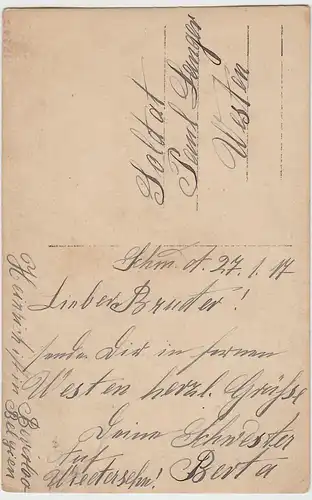 Soldat
Paul Langer
Westen
Schm. d. 27.1.17
Lieber Bruder!
sende Dir in fernen
Westen herzl. Grüsse
Deine Schwester
Berta
Auf
Wiedersehn!
Heinrich ist in
Belgien